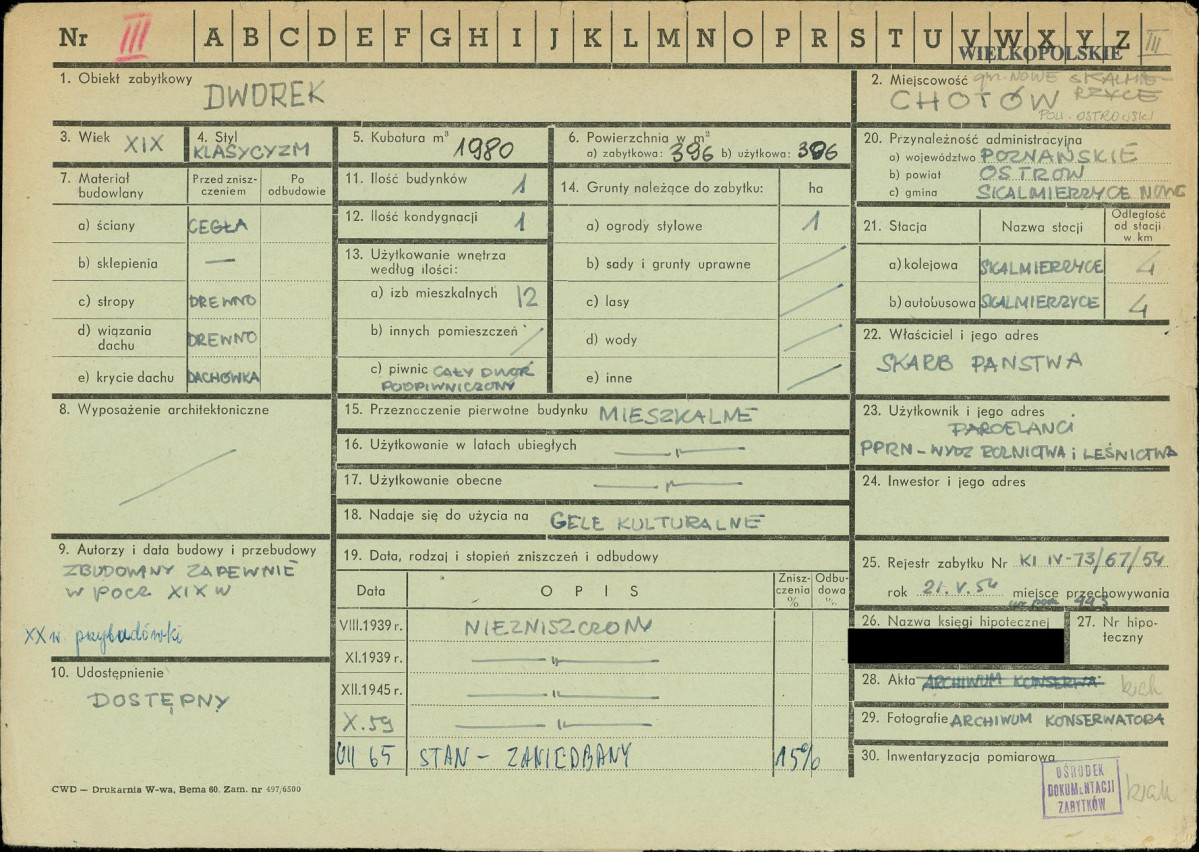 Nr III A B C D E F G H I J K L M N O P R S T U V W X Y Z III
WIELKOPOLSKIE
1. Obiekt zabytkowy
DWOREK
2. Miejscowość gm. NOWE SKALMIE-
RZYCE
CHOTÓW
POW. OSTROWSKI
3. Wiek XIX
4. Styl
KLASYCYZM
5. Kubatura m³
1980
6. Powierzchnia w m²
a) zabytkowa: 396 b) użytkowa: 396
20. Przynależność administracyjna
a) województwo POZNAŃSKIE
b) powiat OSTRÓW
c) gmina SKALMIERZYCE NOWE
7. Materiał budowlany
Przed znisz-
czeniem
Po
odbudowie
a) ściany CEGŁA
b) sklepienia —
c) stropy DREWNO
d) wiązania
dachu DREWNO
e) krycie dachu DACHÓWKA
11. Ilość budynków 1
12. Ilość kondygnacji 1
13. Użytkowanie wnętrza
według ilości:
a) izb mieszkalnych 12
b) innych pomieszczeń /
c) piwnic CAŁY DWÓR
PODPIWNICZONY
14. Grunty należące do zabytku: ha
a) ogrody stylowe 1
b) sady i grunty uprawne /
c) lasy /
d) wody /
e) inne /
21. Stacja
Nazwa stacji
Odległość
od stacji
w km
a) kolejowa SKALMIERZYCE 4
b) autobusowa SKALMIERZYCE 4
22. Właściciel i jego adres
SKARB PAŃSTWA
8. Wyposażenie architektoniczne
/
15. Przeznaczenie pierwotne budynku MIESZKALNE
16. Użytkowanie w latach ubiegłych —„—
17. Użytkowanie obecne —„—
18. Nadaje się do użycia na CELE KULTURALNE
23. Użytkownik i jego adres
PARCELANCI
PPRN - WYDZ ROLNICTWA i LEŚNICTWA
24. Inwestor i jego adres
9. Autorzy i data budowy i przebudowy
ZBUDOWANY ZAPEWNIE
W POCZ. XIX W
XX w. przybudówki
10. Udostępnienie
DOSTĘPNY
19. Data, rodzaj i stopień zniszczeń i odbudowy
Data
OPIS
Znisz-
czenia
%
Odbu-
dowa
%
VIII.1939 r. NIEZNISZCZONY
XI.1939 r. —„—
XII.1945 r. —„—
X.59 —„—
VII 65 STAN - ZANIEDBANY 15%
25. Rejestr zabytku Nr KI IV-73/67/54
rok 21.V.54 miejsce przechowywania
993
26. Nazwa księgi hipotecznej
27. Nr hipo-
teczny
28. Akta ARCHIWUM KONSERWA brak
29. Fotografie ARCHIWUM KONSERWATORA
30. Inwentaryzacja pomiarowa
brak
OŚRODEK
DOKUMENTACJI
ZABYTKÓW
CWD — Drukarnia W-wa, Bema 60. Zam. nr 497/6500